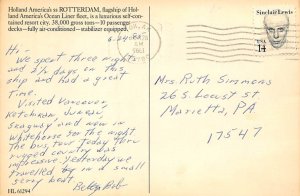 Holland America's ss ROTTERDAM, flagship of Hol-
land America's Ocean Liner fleet, is a luxurious self-con-
tained resort city, 38,000 gross tons—10 passenger
decks—fully air-conditioned—stabilizer equipped.
Sinclair Lewis
USA
14
PM
1987
6-24-87
Hi -
We spent three nights
and 2½ days on this
ship and had a great
time.
Visited Vancouver,
Ketchikan, Juneau,
Skagway and now in
Whitehorse for the night
The bus tour today thru
rugged country was
impressive. Yesterday we
travelled by in a small
ferry boat.
Betty Bob
Mrs Ruth Simmens
26 S. Locust St
Marietta, PA.
17547
HL 61294